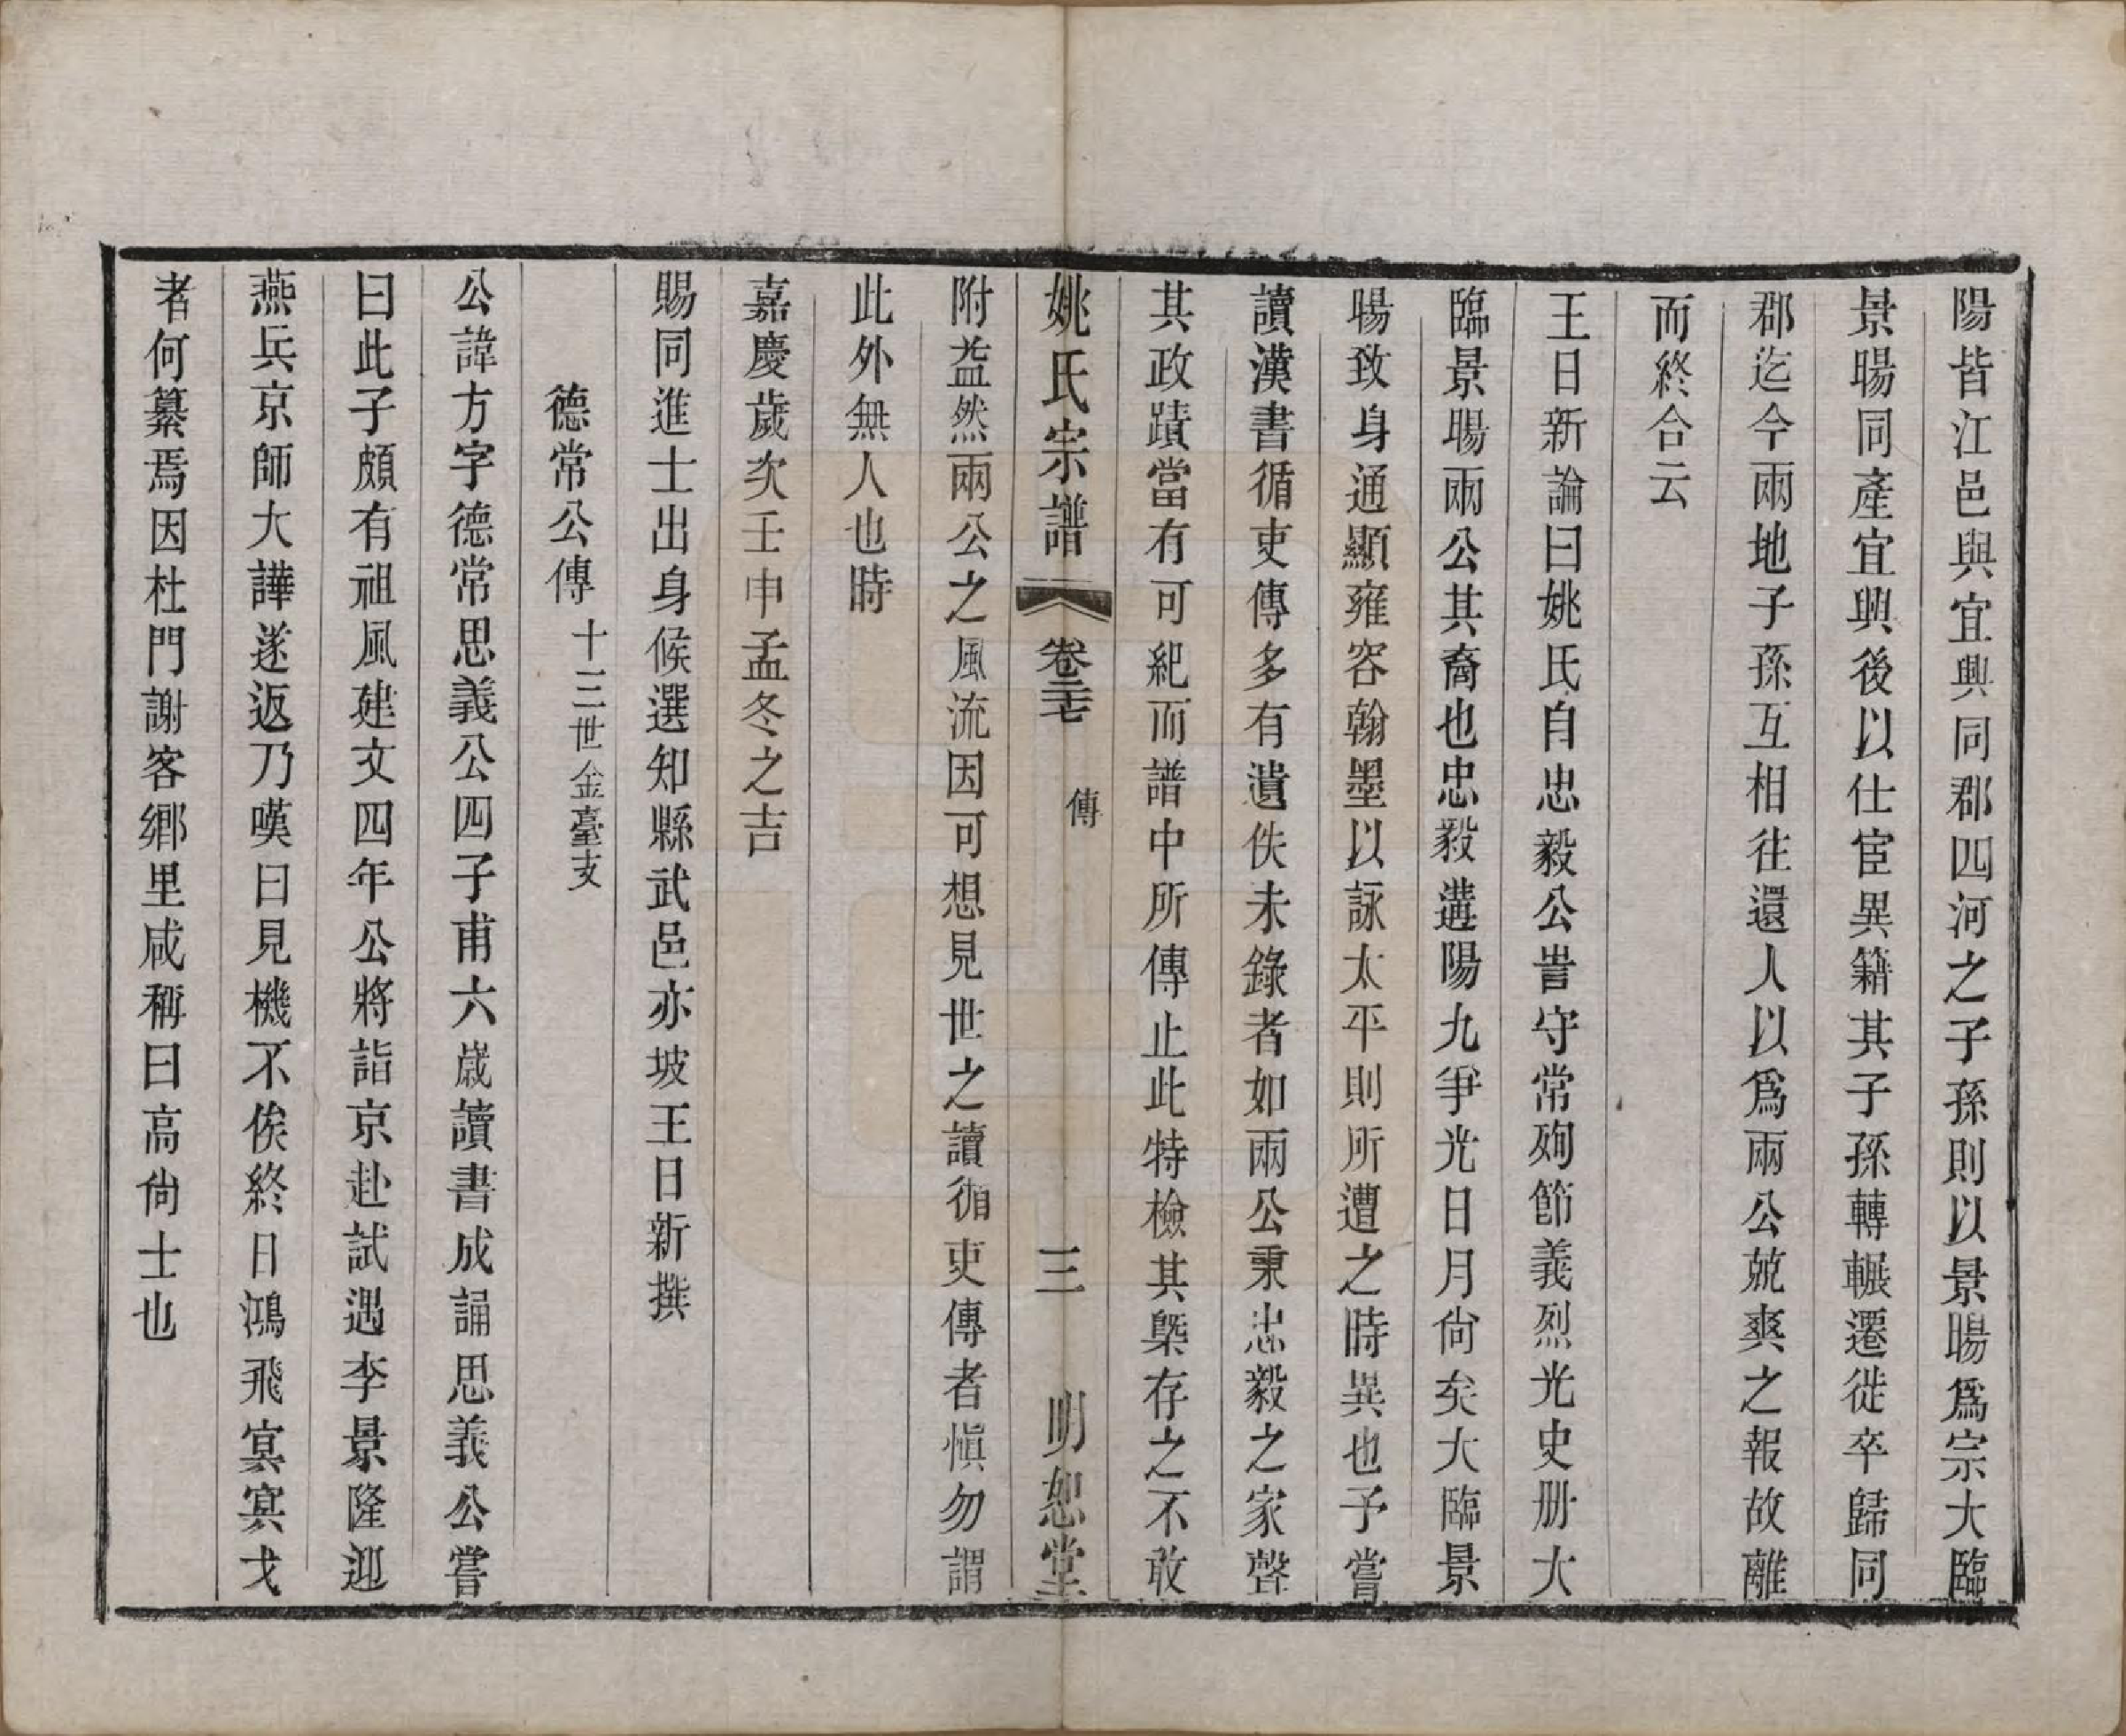 陽皆江邑與宜興同郡四河之子孫則以景暘爲宗大臨
景暘同產宜興後以仕宦異籍其子孫轉輾遷徙卒歸同
郡迄今兩地子孫互相徃還人以爲兩公兢爽之報故離
而終合云
王日新論曰姚氏自忠毅公旹守常殉節義烈光史册大
臨景暘兩公其裔也忠毅遘陽九爭光日月尙矣大臨景
暘致身通顯雍容翰墨以詠太平則所遭之時異也予嘗
讀漢書循吏傳多有遺佚未錄者如兩公秉忠毅之家聲
其政蹟當有可紀而譜中所傳止此特檢其槩存之不敢
姚氏宗譜
卷三十七
傳
三
明恕堂
附益然兩公之風流因可想見世之讀循吏傳者愼勿謂
此外無人也時
嘉慶歲次壬申孟冬之吉
賜同進士出身候選知縣武邑亦坡王日新撰
德常公傳十三世金臺支
公諱方字德常思義公四子甫六歲讀書成誦思義公嘗
曰此子頗有祖風建文四年公將詣京赴試遇李景隆迎
燕兵京師大譁遂返乃嘆曰見機不俟終日鴻飛冥冥弋
者何纂焉因杜門謝客鄉里咸稱曰高尙士也